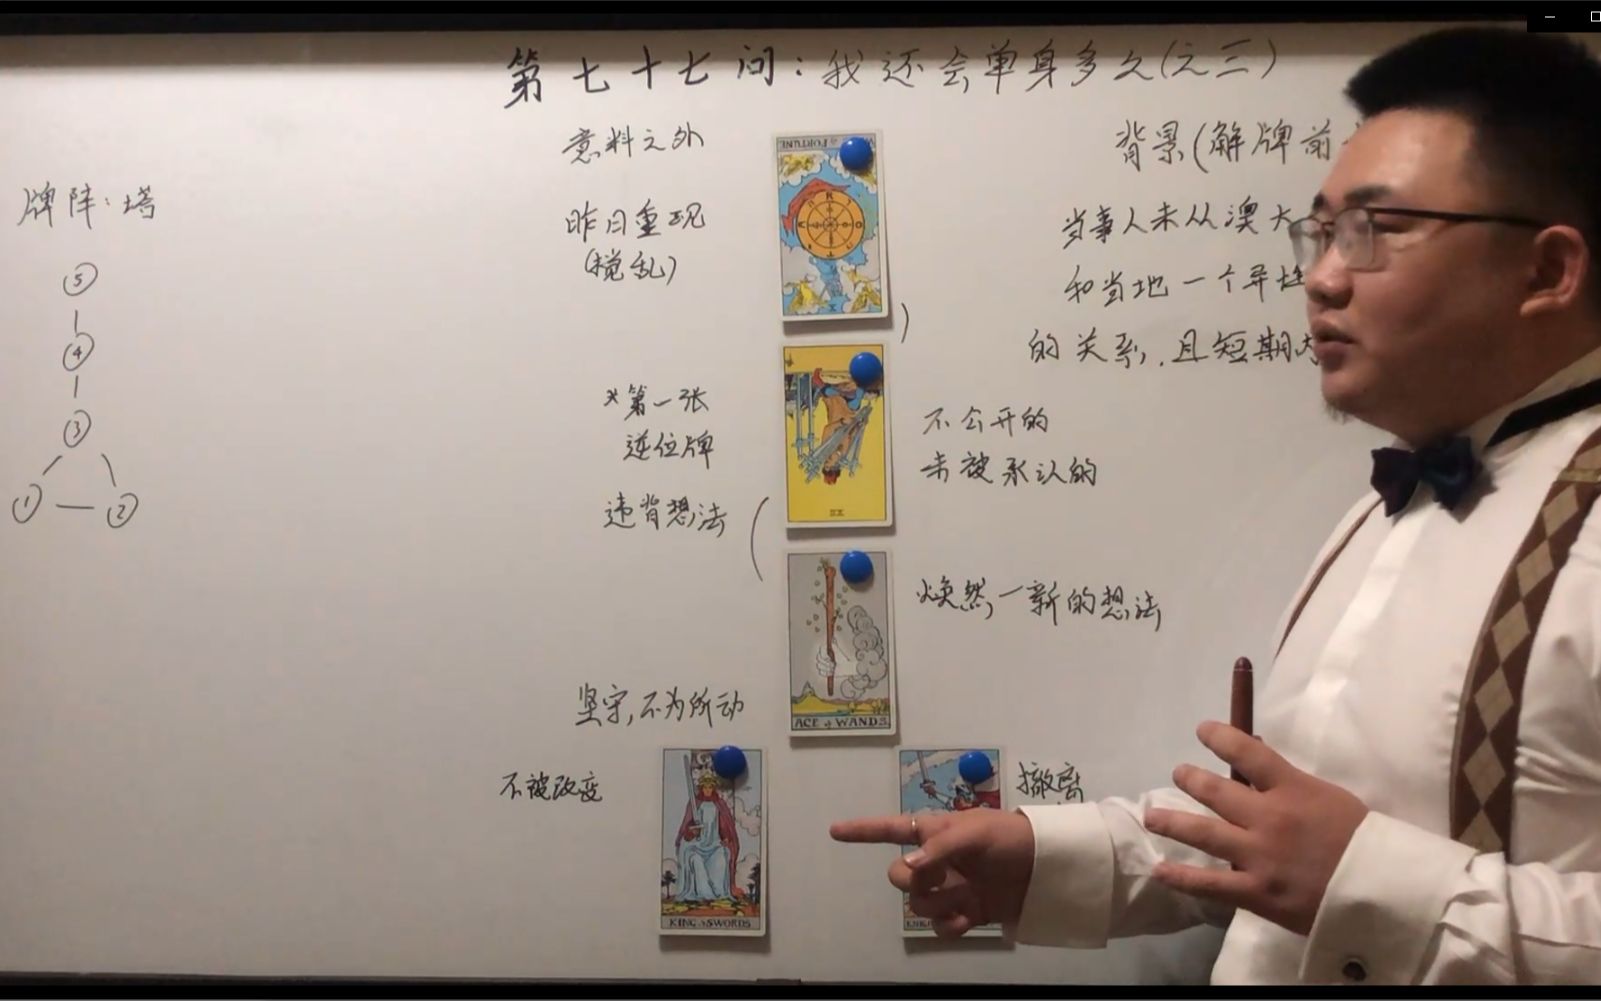 第七十七问：我还会单身多久(之三)
牌阵：塔
⑤
④
③
① ②
意料之外
昨日重现
(搅乱)
*第一张
逆位牌
违背想法
坚守,不为所动
不被改变
背景(解牌前
当事人未从澳大
和当地一个异性
的关系,且短期内
不公开的
未被承认的
焕然一新的想法
撤离
FORTUNE
X
VII
ACE of WANDS.
KING of SWORDS